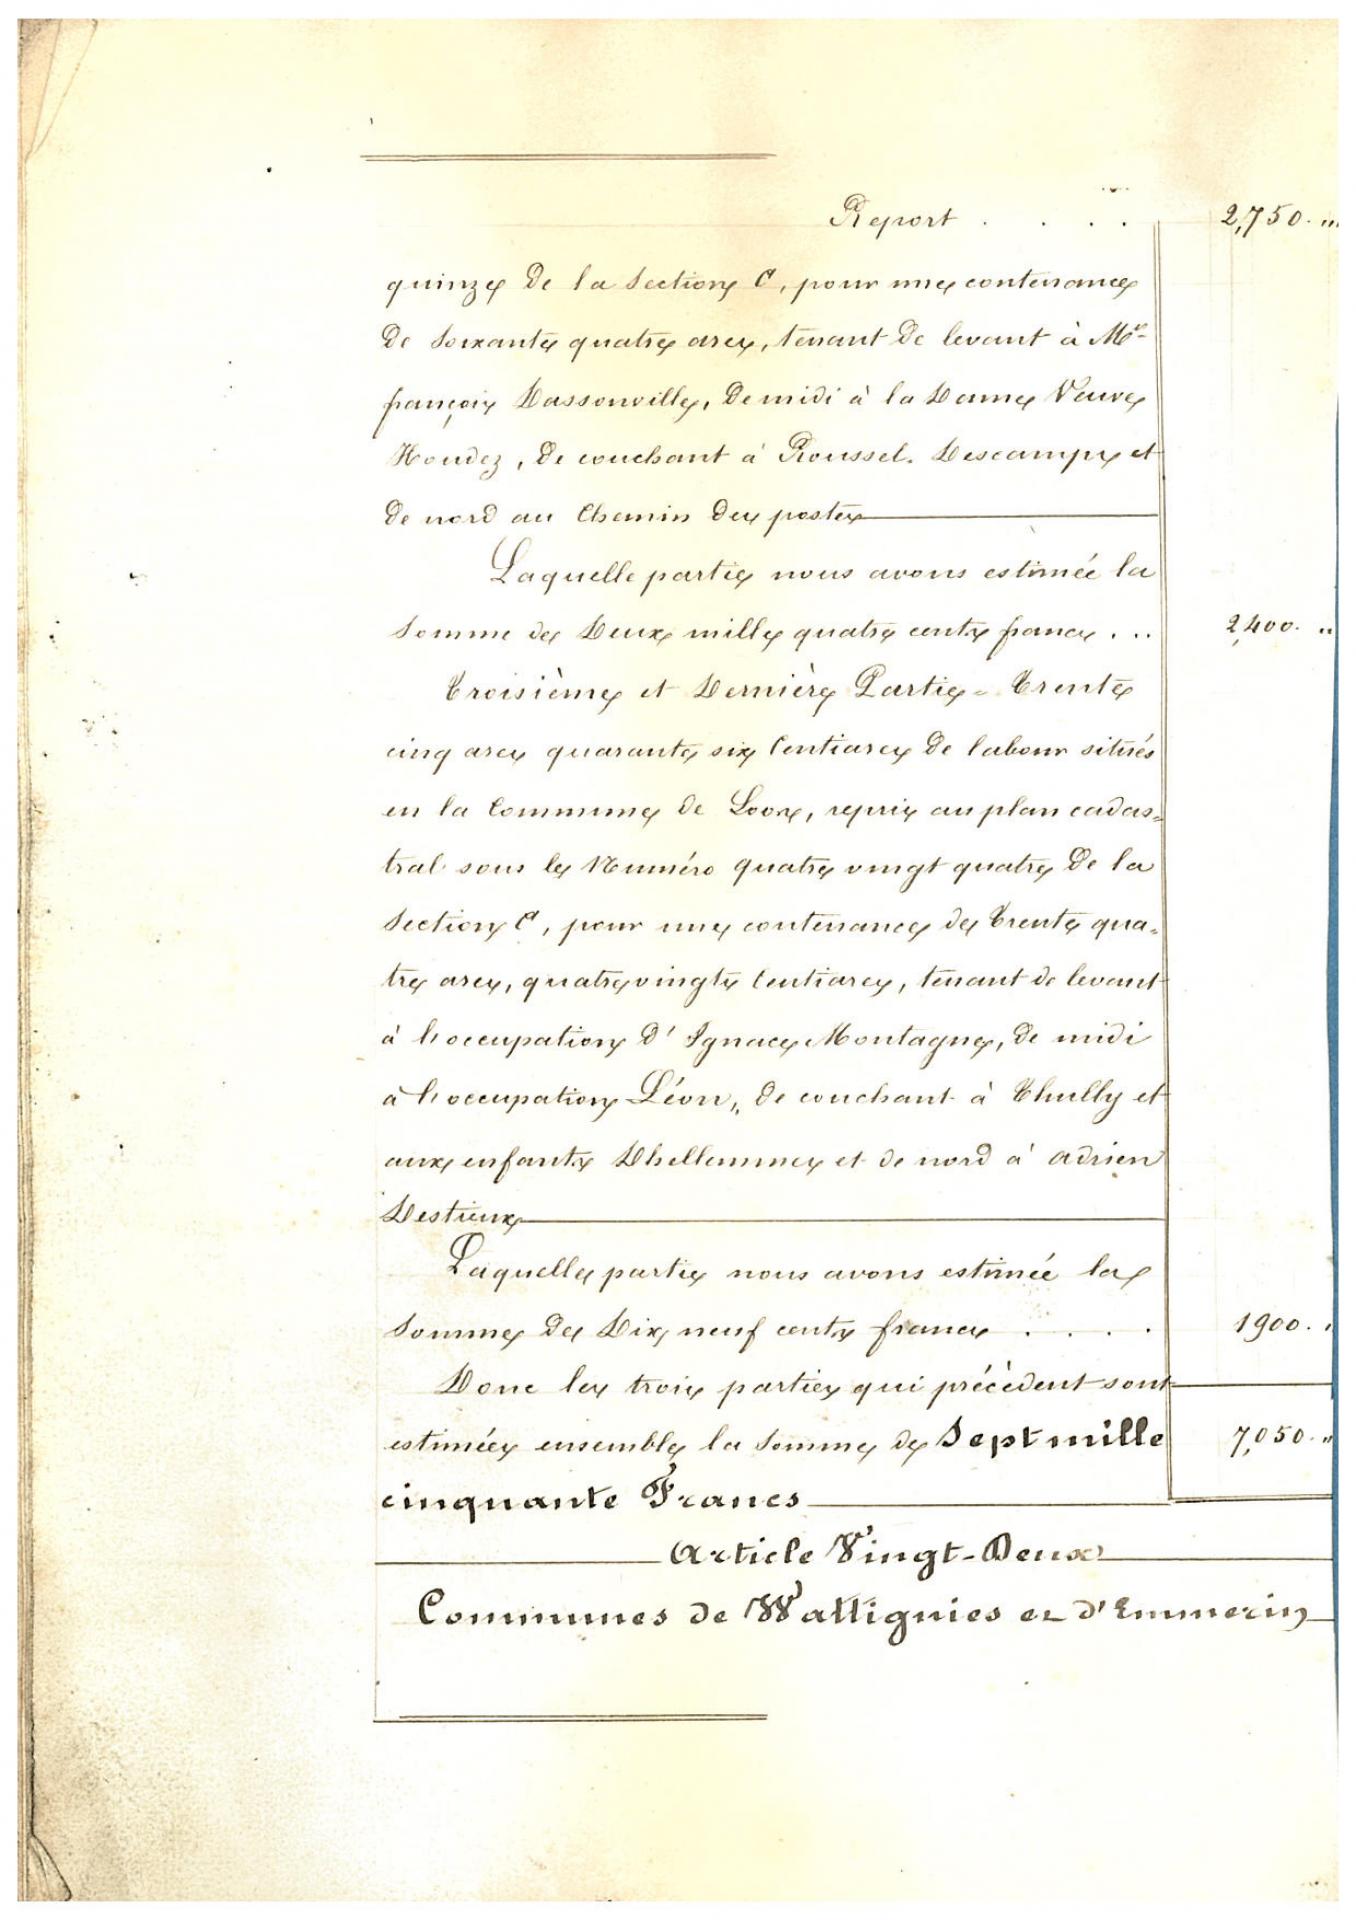 Report . . . . 2,750. "
quinze de la Section C, pour une contenance
de Soixante quatre ares, tenant de levant à Mr
françois Dassonville, de midi à la Dame Veuve
Houdez, de couchant à Roussel. Descamps et
de nord au Chemin des postes
Laquelle partie nous avons estimée la
Somme de Deux mille quatre cents francs . . . 2,400. "
Troisième et Dernière Partie = Trente
cinq ares quarante six Centiares de labour situés
en la Commune de Loos, repris au plan cadas=
tral sous le Numéro quatre vingt quatre de la
Section C, pour une contenance de Trente qua=
tre ares, quatre vingts Centiares, tenant de levant
à l'occupation d'Ignace Montagne, de midi
à l'occupation Léon, de couchant à Thully et
aux enfants Dhellemmes et de nord à adrien
Destieux
Laquelle partie nous avons estimée la
Somme de Dix neuf cents francs . . . . 1900. "
Donc les trois parties qui précèdent sont
estimées ensemble la Somme de Sept mille 7,050. "
cinquante Francs
Article Vingt-Deux
Communes de Wattignies et d'Emmerin